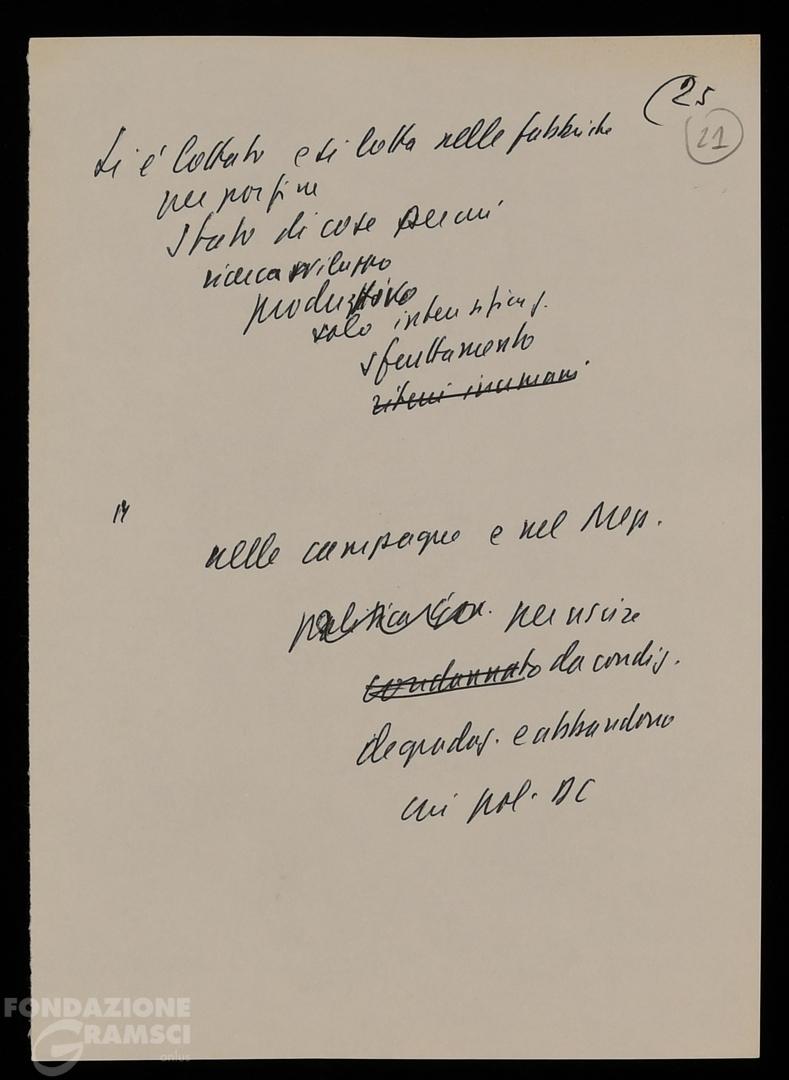 (25
21
Si è lottato e si lotta nelle fabbriche
per por fine
stato di cose per cui
ricerca sviluppo
produttivo
solo intensificaz.
sfruttamento
ritmi inumani
nelle campagne e nel Mezz.
per uscire
condannato da condiz.
degradaz. e abbandono
cui pol. DC
FONDAZIONE
GRAMSCI
onlus